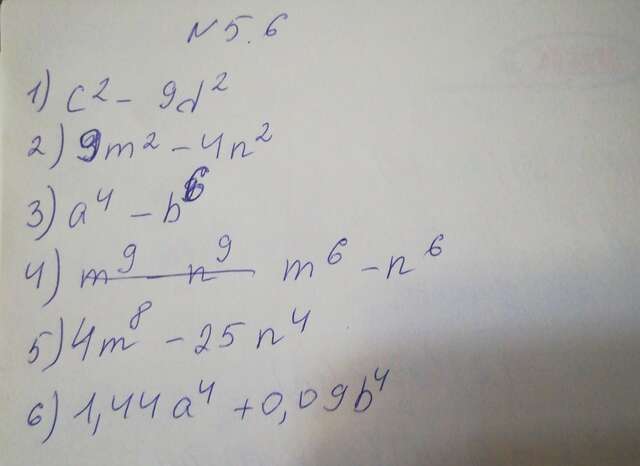 N 5.6
1) c² - 9d²
2) 9m² - 4n²
3) a⁴ - b⁶
4) m⁹ - n⁹ m⁶ - n⁶
5) 4m⁸ - 25n⁴
6) 1,44a⁴ + 0,09b⁴